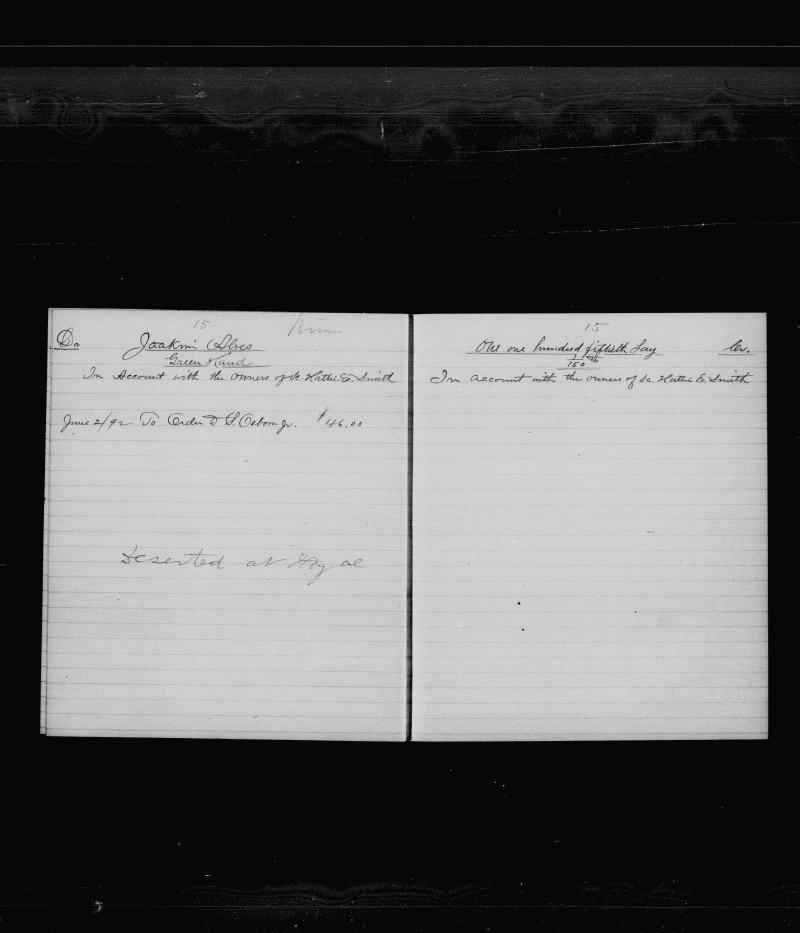 15
Dr
Jaakim Alves
Green Hand
In Account with the owners of Sc. Hattie E. Smith
June 2/92 To Order D S. Osborn Jr. $46.00
Deserted at Fayal
15
One one hundred fiftieth Lay Cr.
1/150
In account with the owners of Sc. Hattie E. Smith